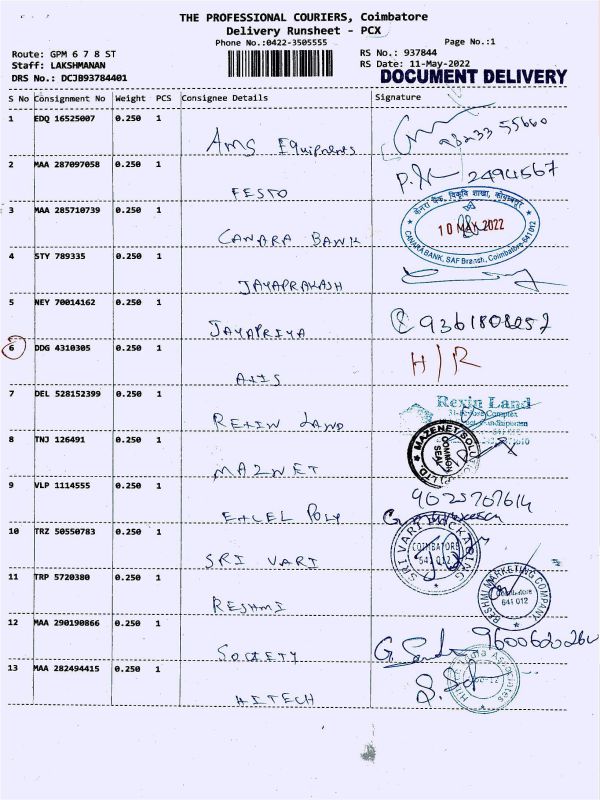 THE PROFESSIONAL COURIERS, Coimbatore
Delivery Runsheet - PCX
Phone No.:0422-3505555
Page No.:1
Route: GPM 6 7 8 ST
RS No.: 937844
Staff: LAKSHMANAN
RS Date: 11-May-2022
DRS No.: DCJB93784401
DOCUMENT DELIVERY
S No Consignment No Weight PCS Consignee Details Signature
1 EDQ 16525007 0.250 1
AMS Equipments
98233 55660
2 MAA 287097058 0.250 1
FESTO
2494567
3 MAA 285710739 0.250 1
CANARA BANK
केनरा बैंक,
10 MAY 2022
CANARA BANK, SAF Branch, Coimbatore-641 012
4 STY 789335 0.250 1
JAYAPRAKASH
5 NEY 70014162 0.250 1
JAYAPRIYA
9361808252
6 DDG 4310305 0.250 1
AXIS
H/R
7 DEL 528152399 0.250 1
REXIN LAND
Rexin Land
8 TNJ 126491 0.250 1
MAZNET
COMMON SEAL
9 VLP 1114555 0.250 1
EXCEL POLY
9025767614
10 TRZ 50550783 0.250 1
SRI VARI
SRI VARI PACKAGING
COIMBATORE
641 012
11 TRP 5720380 0.250 1
RESHMI
RESHMI MARKETING COMPANY
Coimbatore
641 012
12 MAA 290190866 0.250 1
SOCIETY
13 MAA 282494415 0.250 1
HITECH